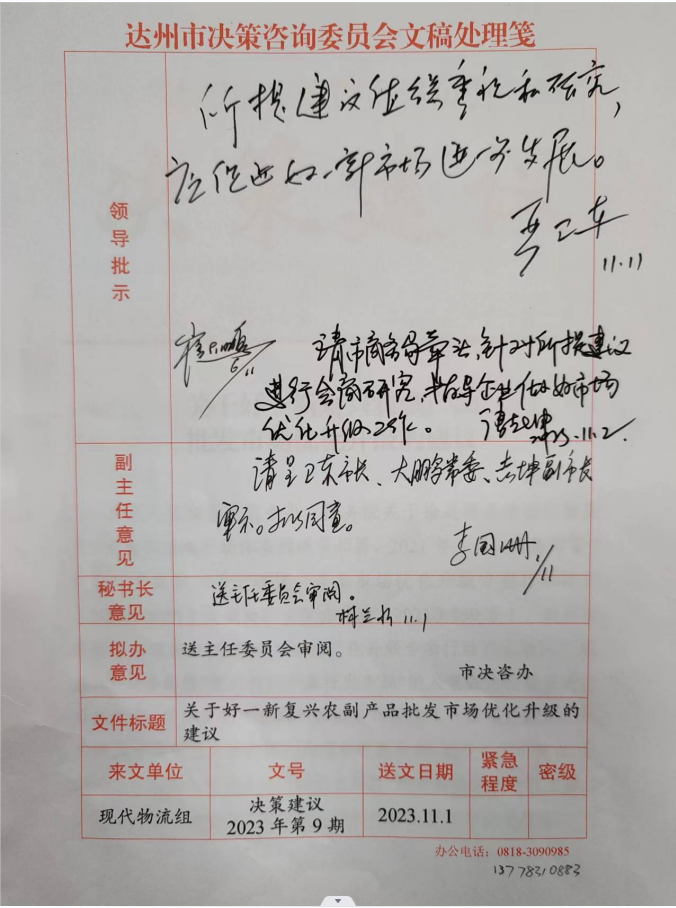 达州市决策咨询委员会文稿处理笺
领导批示
所提建议值得重视和研究,
应促进好一新市场进一步发展。
严卫东
11.11
请市商务局牵头,针对所提建议
进行会商研究,指导企业做好市场
优化升级工作。
2023.11.2
副主任意见
请呈卫东市长、大鹏常委、志坤副市长
审示。拟同意。
李国册
1/11
秘书长意见
送主任委员会审阅。
11.1
拟办意见
送主任委员会审阅。
市决咨办
文件标题
关于好一新复兴农副产品批发市场优化升级的
建议
来文单位 文号 送文日期 紧急程度 密级
现代物流组 决策建议 2023年第9期 2023.11.1
办公电话:0818-3090985
13778310883